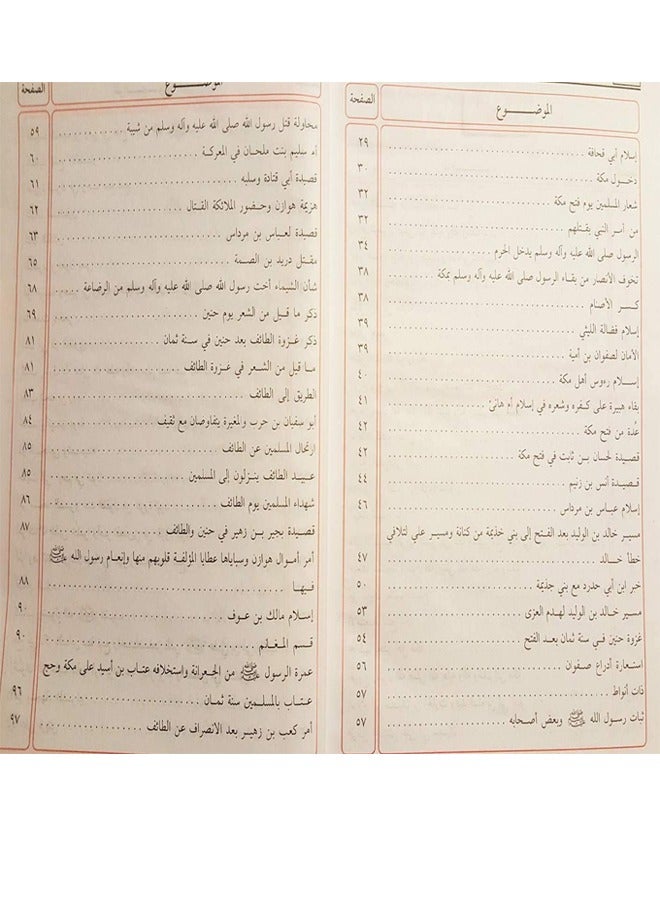 الموضوع الصفحة
إسلام أبي قحافة ٢٩
دخول مكة ٣٠
شعار المسلمين يوم فتح مكة ٣٢
من أمر النبي بقتلهم ٣٢
الرسول صلى الله عليه وآله وسلم يدخل الحرم ٣٤
تخوف الأنصار من بقاء الرسول صلى الله عليه وآله وسلم بمكة ٣٨
كسر الأصنام ٣٨
إسلام فضالة الليثي ٣٩
الأمان لصفوان بن أمية ٣٩
إسلام رءوس أهل مكة ٤٠
بقاء هبيرة على كفره وشعره في إسلام أم هانئ ٤١
عُدة من فتح مكة ٤٢
قصيدة لحسان بن ثابت في فتح مكة ٤٢
قصيدة أنس بن زنيم ٤٤
إسلام عباس بن مرداس ٤٦
مسير خالد بن الوليد بعد الفتح إلى بني خذيمة من كنانة ومسير علي لتلافي
خطأ خالد ٤٧
خبر ابن أبي حدرد مع بني جذيمة ٥٠
مسير خالد بن الوليد لهدم العزى ٥٣
غزوة حنين في سنة ثمان بعد الفتح ٥٤
استعارة أدراع صفوان ٥٦
ذات أنواط ٥٧
ثبات رسول الله ﷺ وبعض أصحابه ٥٧
الموضوع الصفحة
محاولة قتل رسول الله صلى الله عليه وآله وسلم من شيبة ٥٩
أم سليم بنت ملحان في المعركة ٦٠
قصيدة أبي قتادة وسلبه ٦١
هزيمة هوازن وحضور الملائكة القتال ٦٢
قصيدة لعباس بن مرداس ٦٣
مقتل دريد بن الصمة ٦٥
شأن الشيماء أخت رسول الله صلى الله عليه وآله وسلم من الرضاعة ٦٨
ذكر ما قيل من الشعر يوم حنين ٦٩
ذكر غزوة الطائف بعد حنين في سنة ثمان ٨١
ما قيل من الشعر في غزوة الطائف ٨١
الطريق إلى الطائف ٨٣
أبو سفيان بن حرب والمغيرة يتفاوضان مع ثقيف ٨٤
ارتحال المسلمين عن الطائف ٨٥
عبيد الطائف ينزلون إلى المسلمين ٨٥
شهداء المسلمين يوم الطائف ٨٦
قصيدة بجير بن زهير في حنين والطائف ٨٧
أمر أموال هوازن وسباياها عطايا المؤلفة قلوبهم منها وإنعام رسول الله ﷺ
فيها ٨٨
إسلام مالك بن عوف ٩٠
قسم المغانم ٩٠
عمرة الرسول ﷺ من الجعرانة واستخلافه عتاب بن أسيد على مكة وحج
عتاب بالمسلمين سنة ثمان ٩٦
أمر كعب بن زهير بعد الانصراف عن الطائف ٩٧